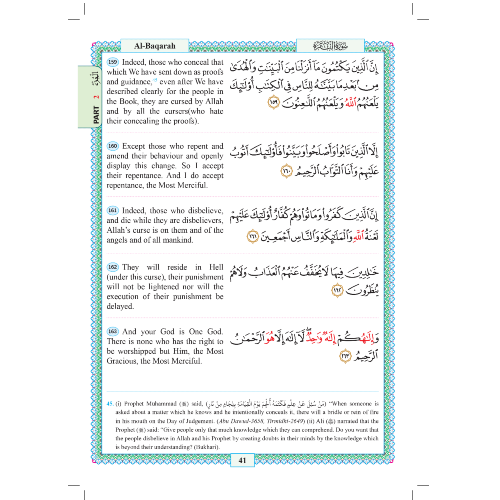 Al-Baqarah
سُورَةُ الْبَقَرَةِ
PART 2
159 Indeed, those who conceal that
which We have sent down as proofs
and guidance, even after We have
described clearly for the people in
the Book, they are cursed by Allah
and by all the cursers(who hate
their concealing the proofs).
إِنَّ ٱلَّذِينَ يَكْتُمُونَ مَآ أَنزَلْنَا مِنَ ٱلْبَيِّنَٰتِ وَٱلْهُدَىٰ
مِنۢ بَعْدِ مَا بَيَّنَّٰهُ لِلنَّاسِ فِى ٱلْكِتَٰبِ أُو۟لَٰٓئِكَ
يَلْعَنُهُمُ ٱللَّهُ وَيَلْعَنُهُمُ ٱللَّٰعِنُونَ ١٥٩
160 Except those who repent and
amend their behaviour and openly
display this change. So I accept
their repentance. And I do accept
repentance, the Most Merciful.
إِلَّا ٱلَّذِينَ تَابُوا۟ وَأَصْلَحُوا۟ وَبَيَّنُوا۟ فَأُو۟لَٰٓئِكَ أَتُوبُ
عَلَيْهِمْ وَأَنَا ٱلتَّوَّابُ ٱلرَّحِيمُ ١٦٠
161 Indeed, those who disbelieve,
and die while they are disbelievers,
Allah's curse is on them and of the
angels and of all mankind.
إِنَّ ٱلَّذِينَ كَفَرُوا۟ وَمَاتُوا۟ وَهُمْ كُفَّارٌ أُو۟لَٰٓئِكَ عَلَيْهِمْ
لَعْنَةُ ٱللَّهِ وَٱلْمَلَٰٓئِكَةِ وَٱلنَّاسِ أَجْمَعِينَ ١٦١
162 They will reside in Hell
(under this curse), their punishment
will not be lightened nor will the
execution of their punishment be
delayed.
خَٰلِدِينَ فِيهَا لَا يُخَفَّفُ عَنْهُمُ ٱلْعَذَابُ وَلَا هُمْ
يُنظَرُونَ ١٦٢
163 And your God is One God.
There is none who has the right to
be worshipped but Him, the Most
Gracious, the Most Merciful.
وَإِلَٰهُكُمْ إِلَٰهٌ وَٰحِدٌ لَّآ إِلَٰهَ إِلَّا هُوَ ٱلرَّحْمَٰنُ
ٱلرَّحِيمُ ١٦٣
45. (i) Prophet Muhammad (ﷺ) said, (مَنْ سُئِلَ عَنْ عِلْمٍ فَكَتَمَهُ أُلْجِمَ يَوْمَ الْقِيَامَةِ بِلِجَامٍ مِنْ نَارٍ) "When someone is
asked about a matter which he knows and he intentionally conceals it, there will a bridle or rein of fire
in his mouth on the Day of Judgement. (Abu Dawud-3658, Tirmidhi-2649) (ii) Ali (ؓ) narrated that the
Prophet (ﷺ) said: "Give people only that much knowledge which they can comprehend. Do you want that
the people disbelieve in Allah and his Prophet by creating doubts in their minds by the knowledge which
is beyond their understanding? (Bukhari).
41